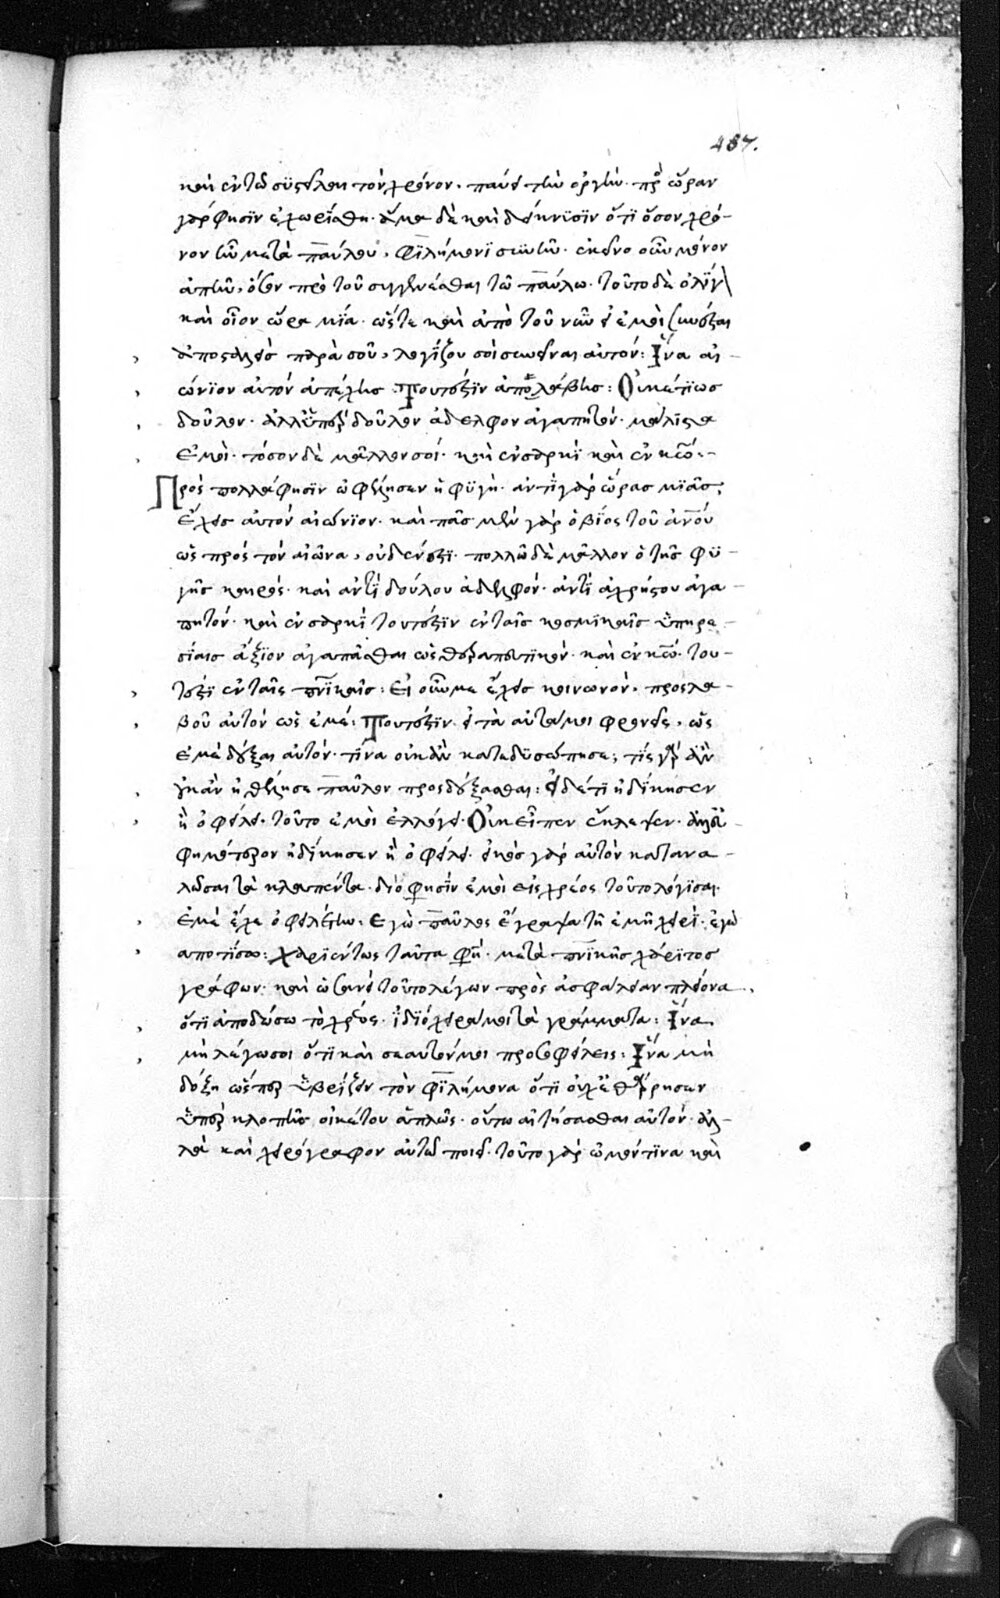 487.
καὶ ἐν τῶ συστεῖλαι τὸν χρόνον· παύει τὴν ὀργήν· πρὸς ὥραν
γάρ φησϊν ἐχωρίσθη· ἅμα δὲ καὶ δείκνυσϊν ὅτϊ ὅσον χρό-
νον ἦν μετὰ παύλου, φϊλήμονϊ συνῆν· ἐκεῖνο οὖν μόνον
ἀπῆν, ὅσον πρὸ τοῦ συγγενέσθαι τῶ παύλω· τοῦτο δὲ ὀλίγον
καὶ οἷον ὥρα μϊα· ὥστε καὶ ἀπὸ τοῦ νῦν εἰ ἐμοὶ
ἀποσταλεὶς παρὰ σοῦ, λογίζου σοὶ συνεῖναι αὐτόν: Ἵνα αἰ-
ώνϊον αὐτὸν ἀπέχης· Τουτέστϊν ἀπολάβης: Οὐκέτϊ ὡς
δοῦλον· ἀλλ' ὑπὲρ δοῦλον ἀδελφὸν ἀγαπητόν· μάλϊστα
ἐμοὶ· πόσον δὲ μᾶλλον σοί· καὶ ἐν σαρκὶ καὶ ἐν κω:-
Πρὸς πολλά φησϊν ὠφέλησεν ἡ φυγή· ἀντὶ γὰρ ὥρας μϊᾶς,
ἔχεις αὐτὸν αἰώνϊον· καὶ πᾶς μὲν γὰρ ὁ βίος τοῦ ἀνου
ὡς πρὸς τὸν αἰῶνα, οὐδέν ἐστϊ· πολλῶ δὲ μᾶλλον ὁ τῆς φυ-
γῆς καιρός· καὶ ἀντὶ δούλου ἀδελφόν· ἀντὶ ἀχρήστου ἀγα-
πητόν· καὶ ἐν σαρκὶ τουτέστϊν ἐν ταῖς κοσμικαῖς ὑπηρε-
σίαις ἄξϊον ἀγαπᾶσθαι ὡς θεραπευτϊκόν· καὶ ἐν κω· του-
τέστϊ ἐν ταῖς πνϊκαῖς: Εἰ οὖν με ἔχεις κοινωνόν, προσλα-
βοῦ αὐτὸν ὡς ἐμέ: Τουτέστϊν· εἰ τὰ αὐτά μοι φρονεῖς, ὡς
ἐμὲ δέξαι αὐτόν· τίνα οὐκ ἂν κατεδυσώπησε; τίς γὰρ ἂν
οὐκ ἂν ἠθέλησε παῦλον προσδέξασθαι: Εἰ δέ τϊ ἠδίκησεν
ἢ ὀφείλει· τοῦτο ἐμοὶ ἐλλόγει· Οὐκ εἶπεν ἔκλεψεν· ἀλλ'
εὐφημότερον ἠδίκησεν ἢ ὀφείλει· εἰκὸς γὰρ αὐτὸν κατανα-
λῶσαι τὰ κλαπέντα· διό φησϊν ἐμοὶ εἰς χρέος τοῦτο λόγϊσαι·
ἐμὲ ἔχε ὀφειλέτην: Ἐγὼ παῦλος ἔγραψα τῆ ἐμῆ χειρὶ· ἐγὼ
ἀποτίσω: Χαριέντως ταῦτα φη· μετὰ πνϊκῆς χάρϊτος
γράφων· καὶ ὡσανεὶ τοῦτο λέγων πρὸς ἀσφάλειαν πλείονα.,
ὅτϊ ἀποδώσω τὸ χρέος· ἰδϊόχειρά μοι τὰ γράμματα: Ἵνα
μὴ λέγω σοι ὅτϊ καὶ σεαυτόν μοι προσοφείλεις: Ἵνα μὴ
δόξη ὥσπερ ὑβρίζειν τὸν φϊλήμονα ὅτϊ οὐκ ἐθάρρησεν
ὑπὲρ κλοπῆς οἰκέτου ἁπλῶς· οὕτω αἰτήσασθαι αὐτόν· ἀλ-
λὰ καὶ χειρόγραφον αὐτῶ ποιεῖ· τοῦτο γὰρ ὠμόν τϊνα καὶ